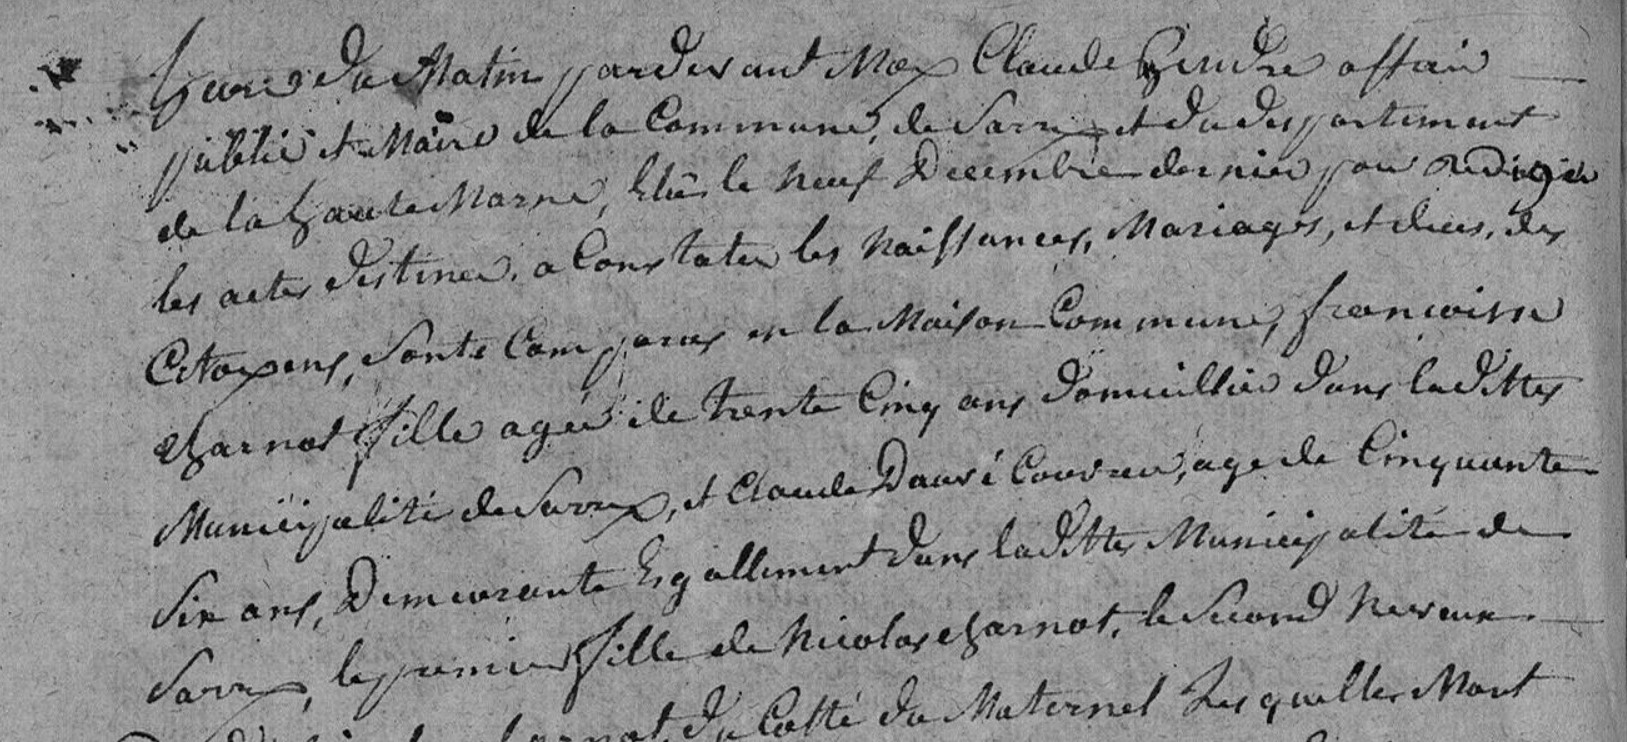 heure du Matin pardevant Moy Claude Gendre officié
public et Maire de la Commune de Sarrey et du despartement
de la haute Marne, Elûe le neuf Decembre dernier pour redigér
les actes destinée a Constater les Naissances, Mariages, et deces, des
Citoyens, Sonte Comparus en la Maison Commune, francoise
Charnot fille agée de trente Cinq ans domicilliée dans la ditte
Municipalité de Sarrey, et Claude Dauvé Couvreu, age de Cinquante
Six ans, Demeurante Esgallement dans la ditte Municipalité de
Sarrey, le premier fille de Nicolas Charnot, le Second Neveux
Charnot, du Cotté du Maternel Lesquelles Mont